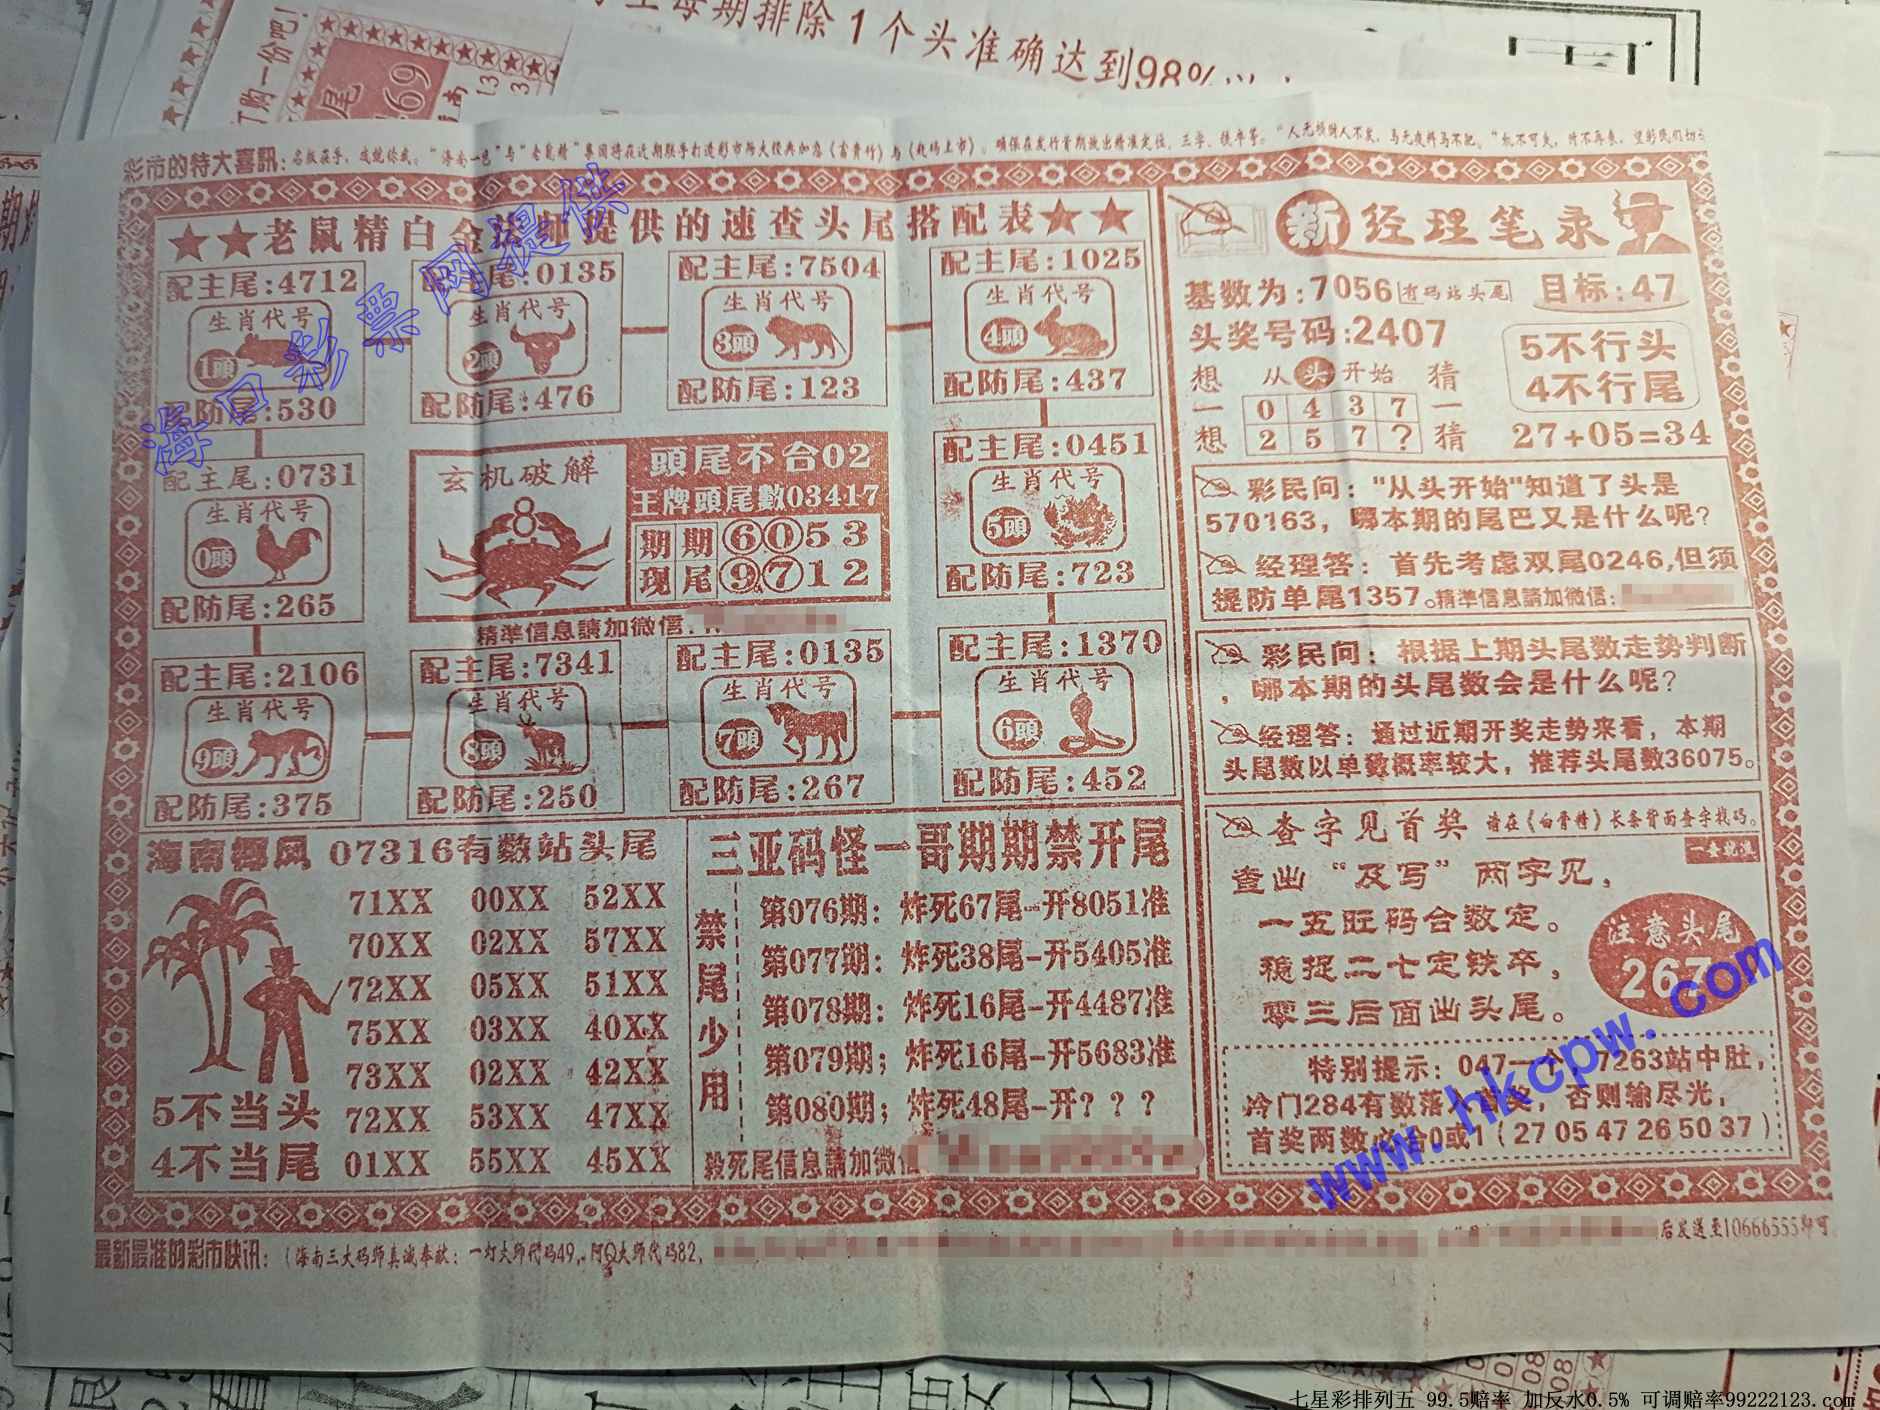 期排除1个头准确达到98%
订购一份吧!
尾
469
彩市的特大喜訊:
★★老鼠精白金 提供的速查头尾搭配表★★
配主尾:4712
生肖代号
1頭
配防尾:530
配主尾:0135
生肖代号
2頭
配防尾:476
配主尾:7504
生肖代号
3頭
配防尾:123
配主尾:1025
生肖代号
4頭
配防尾:437
配主尾:0731
生肖代号
0頭
配防尾:265
玄机破解
8
頭尾不合02
王牌頭尾數03417
期期⑥⓪53
现尾⑨⑦12
精準信息請加微信:
配主尾:0451
生肖代号
5頭
配防尾:723
配主尾:2106
生肖代号
9頭
配防尾:375
配主尾:7341
生肖代号
8頭
配防尾:250
配主尾:0135
生肖代号
7頭
配防尾:267
配主尾:1370
生肖代号
6頭
配防尾:452
海南椰风 07316有数站头尾
71XX 00XX 52XX
70XX 02XX 57XX
72XX 05XX 51XX
75XX 03XX 40XX
73XX 02XX 42XX
72XX 53XX 47XX
01XX 55XX 45XX
5不当头
4不当尾
三亚码怪一哥期期禁开尾
禁尾少用
第076期: 炸死67尾-开8051准
第077期: 炸死38尾-开5405准
第078期: 炸死16尾-开4487准
第079期; 炸死16尾-开5683准
第080期; 炸死48尾-开? ? ?
殺死尾信息請加微信
新 经理笔录
基数为:7056 有码站头尾 目标:47
头奖号码:2407
5不行头
4不行尾
想一想
从头开始
0 4 3 7
2 5 7 ?
猜一猜
27+05=34
彩民问: "从头开始"知道了头是
570163, 哪本期的尾巴又是什么呢?
经理答: 首先考虑双尾0246,但须
提防单尾1357。精準信息請加微信:
彩民问: 根据上期头尾数走势判断
, 哪本期的头尾数会是什么呢?
经理答: 通过近期开奖走势来看, 本期
头尾数以单数概率较大, 推荐头尾数36075。
查字见首奖 请在《白骨精》长条背面查字找码。
一套就准
查出 “及写” 两字见,
一五旺码合数定。
稳捉二七定铁卒,
零三后面出头尾。
注意头尾
267
特别提示: 047一个, 7263站中肚,
冷门284有数落入首奖, 否则输尽光,
首奖两数必合0或1 (27 05 47 26 50 37)
最新最准的彩市快讯: (海南三大码师真诚奉献: 一灯大师代码49, 阿Q大师代码82,
后发送至10666555即可
海口彩票网提供
www.hkcpw.com
七星彩排列五 99.5赔率 加反水0.5% 可调赔率99222123.com